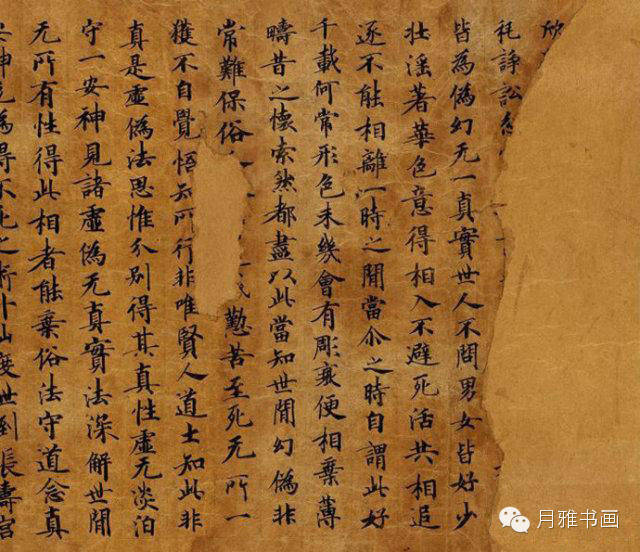 秏諍訟
皆為偽幻无一真實世人不問男女皆好少
壯淫著華色意得相入不避死活共相追
逐不能相離一時之閒當尒之時自謂此好
千載何常形色未幾會有彫衰便相棄薄
疇昔之懷索然都盡以此當知世閒幻偽非
常難保俗懃苦至死无所一
獲不自覺悟知所行非唯賢人道士知此非
真是虛偽法思惟分別得其真性虛无淡泊
守一安神見諸虛偽无真實法深解世閒
无所有性得此相者能棄俗法守道念真
為得不死之術升仙度世到長壽宮
月雅书画